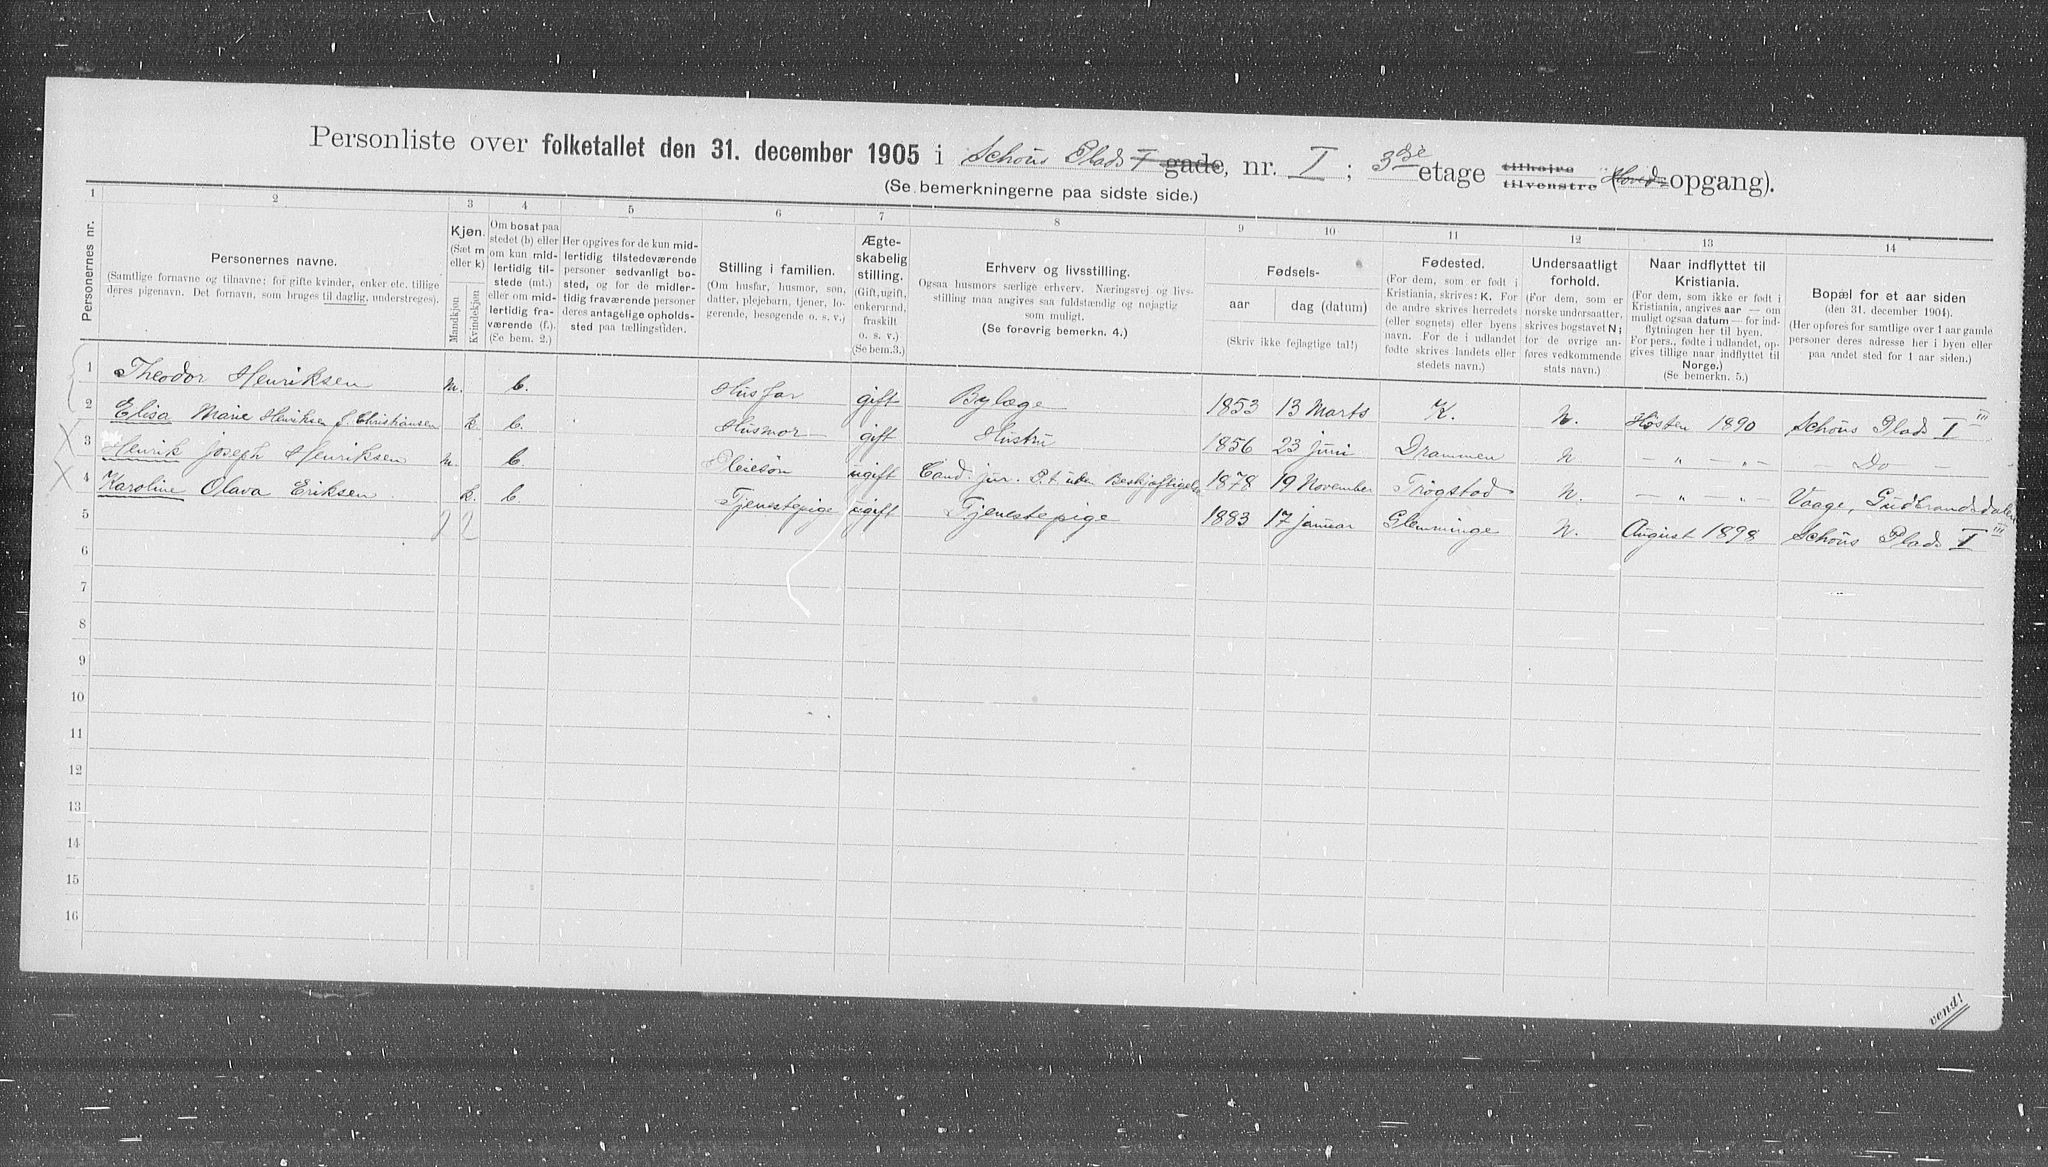 Personliste over folketallet den 31. december 1905 i Schous Plads I gade, nr. I ; 3die etage tilhøjre tilvenstre (Hoved- opgang).
(Se bemerkningerne paa sidste side.)
1 2 3 4 5 6 7 8 9 10 11 12 13 14
Personernes nr.
Personernes navne.
(Samtlige fornavne og tilnavne; for gifte kvinder, enker etc. tillige
deres pigenavn. Det fornavn, som bruges til daglig, understreges).
Kjøn.
(Sæt m
eller k)
Mandkjøn
Kvindekjøn
Om bosat paa
stedet (b) eller
om kun mid-
lertidig til-
stede (mt.)
eller om mid-
lertidig fra-
værende (f.).
(Se bem. 2.)
Her opgives for de kun mid-
lertidig tilstedeværende
personer sedvanligt bo-
sted, og for de midler-
tidig fraværende personer
deres antagelige opholds-
sted paa tællingstiden.
Stilling i familien.
(Om husfar, husmor, søn,
datter, plejebarn, tjener, lo-
gerende, besøgende o. s. v.)
Ægte-
skabelig
stilling.
(Gift, ugift,
enkemand,
fraskilt
o. s. v.)
(Se bem. 3.)
Erhverv og livsstilling.
Ogsaa husmors særlige erhverv. Næringsvej og livs-
stilling maa angives saa fuldstændig og nøjagtig
som muligt.
(Se forøvrig bemerkn. 4.)
Fødsels-
aar
dag (datum)
(Skriv ikke fejlagtige tal!)
Fødested.
(For dem, som er født i
Kristiania, skrives: K. For
de andre skrives herredets
(eller sognets) eller byens
navn. For de i udlandet
fødte skrives landets eller
stedets navn.)
Undersaatligt
forhold.
(For dem, som er
norske undersaatter,
skrives bogstavet N;
for de øvrige an-
føres vedkommende
stats navn.)
Naar indflyttet til
Kristiania.
(For dem, som ikke er født i
Kristiania, angives aar — om
muligt ogsaa datum — for ind-
flytningen her til byen.
For pers., fødte i udlandet, op-
gives tillige naar indflyttet til
Norge.)
(Se bemerkn. 5.)
Bopæl for et aar siden
(den 31. december 1904).
(Her opføres for samtlige over 1 aar gamle
personer deres adresse her i byen eller
paa andet sted for 1 aar siden.)
1 Theodor Henriksen m. b. Husfar gift Bylæge 1853 13 Marts K. N. Høsten 1890 Schous Plads I III
2 Elisa Marie Henriksen f. Christiansen k. b. Husmor gift Hustru 1856 23 juni Drammen N — „ — „ — — Do —
3 Henrik Joseph Henriksen m. b. Pleiesøn ugift Cand. jur. P.t. uden Beskjæftigelse 1878 19 November Trøgstad N. — „ — „ — Vaage, Gudbrandsdalen
4 Karoline Olava Eriksen k. b. Tjenestepige ugift Tjenestepige 1883 17 januar Glemminge N. August 1898 Schous Plads I III
5 2 2
6
7
8
9
10
11
12
13
14
15
16
vend!